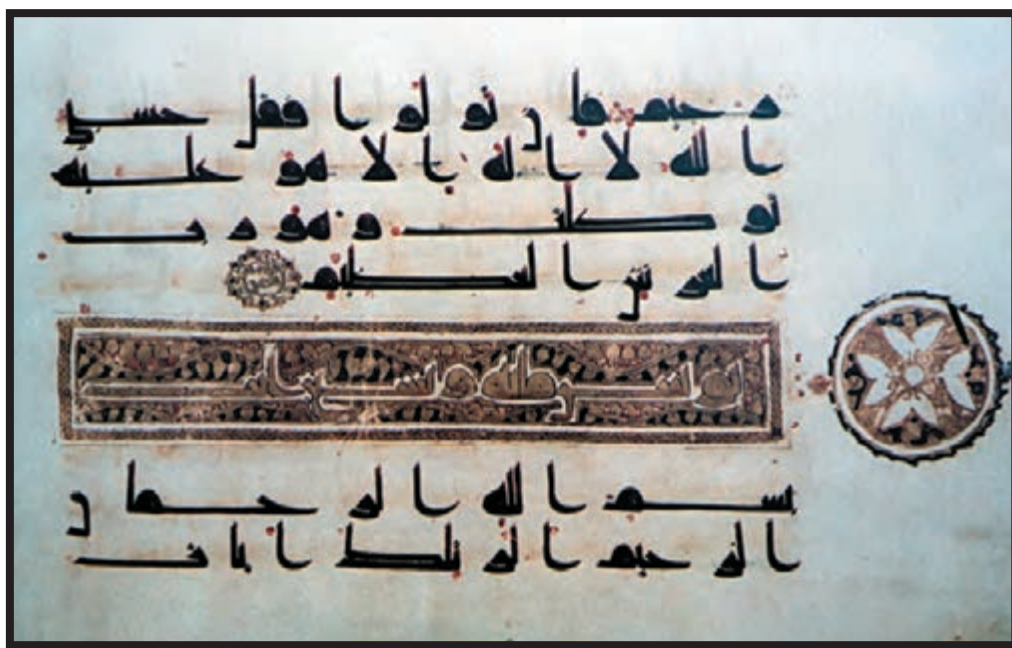 رحيم فان تولوا فقل حسبى
الله لا اله الا هو عليه
توكلت وهو رب
العرش العظيم
يونس مائة وتسع ايات
بسم الله الرحمن
الرحيم الر تلك ايات